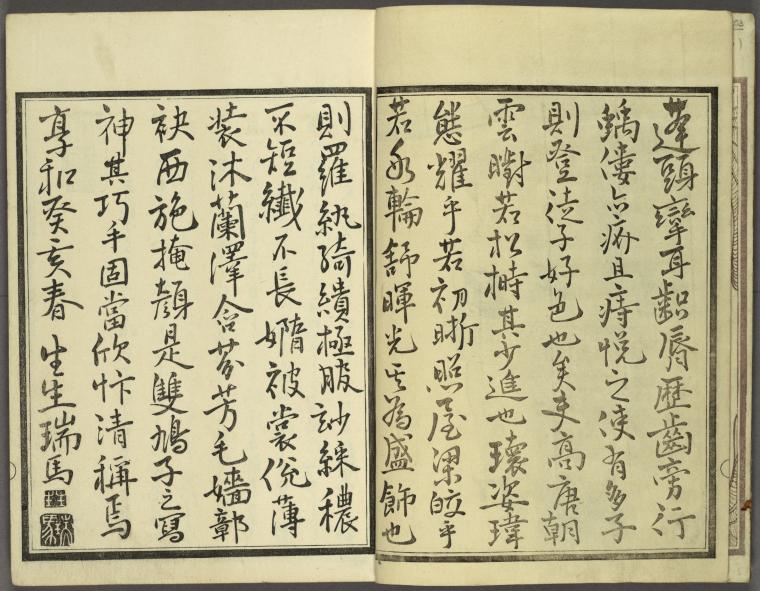 蓬頭攣耳齞脣歷齒旁行
踽僂亦疥且痔悅之使有多子
則登徒子好色也矣夫高唐朝
雲㬣若松榯其少進也瓌姿瑋
態耀乎若初昕照屋梁皎乎
若永輪舒暉光其為盛飾也
則羅紈綺繢極服妙綵穠
不短纖不長嫷被裳侻薄
裝沐蘭澤含芬芳毛嬙鄣
袂西施掩顏是雙鳩子之寫
神其巧手固當欣忭清稱焉
享和癸亥春 生生瑞馬